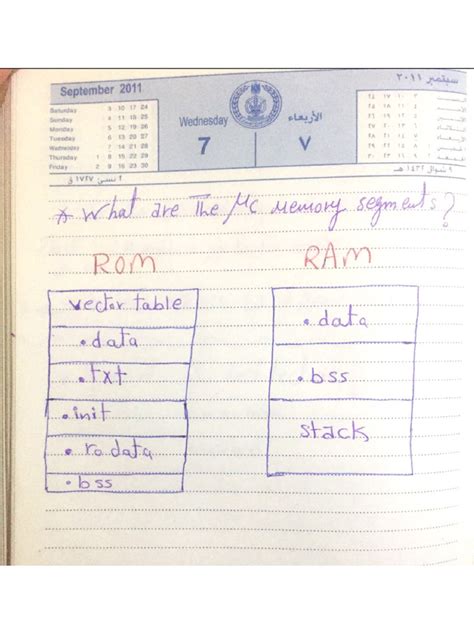 September 2011
Saturday 3 10 17 24
Sunday 4 11 18 25
Monday 5 12 19 26
Tuesday 6 13 20 27
Wednesday 7 14 21 28
Thursday 1 8 15 22 29
Friday 2 9 16 23 30
Wednesday
7
الأربعاء
٧
سبتمبر ٢٠١١
٩ شوال ١٤٣٢ هـ
* What are The μc memory segments?
ROM
vector table
.data
.txt
.init
.ro data
.bss
RAM
.data
.bss
stack